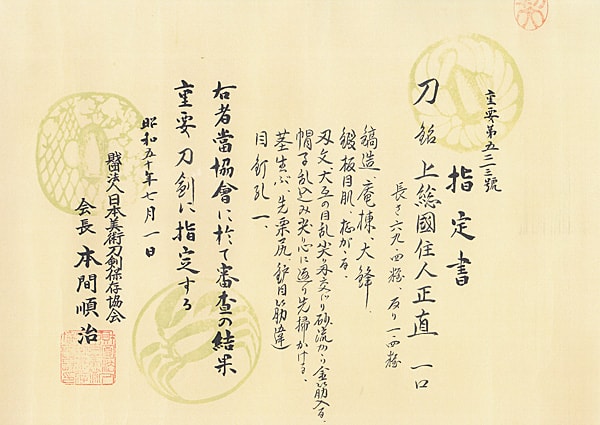 重要第五二三三號
指定書
刀 銘 上総國住人正直 一口
長さ六九・四糎、反り一・四糎
鎬造 庵棟 大鋒、
鍛板目肌 杢がかる、
刃文大互の目乱 尖り刃交じり 砂流かかり 金筋入る、
帽子乱込み尖り心に返り先掃かける、
茎生ぶ、先栗尻、鑢目筋違
目釘孔一、
右者當協會に於て審査の結果
重要刀剣に指定する
昭和五十年七月一日
財団法人日本美術刀剣保存協会
会長 本間順治